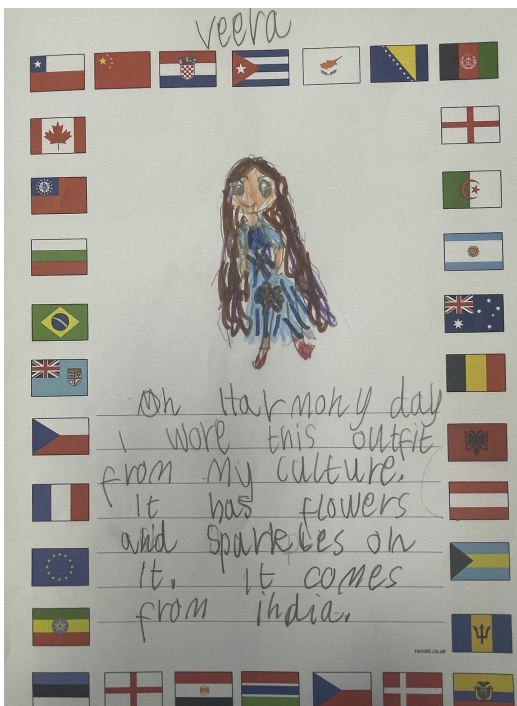 veera
On Harmony day
I wore this outfit
from my culture.
It has flowers
and sparkles on
It. It comes
from india.
twinkl.co.uk